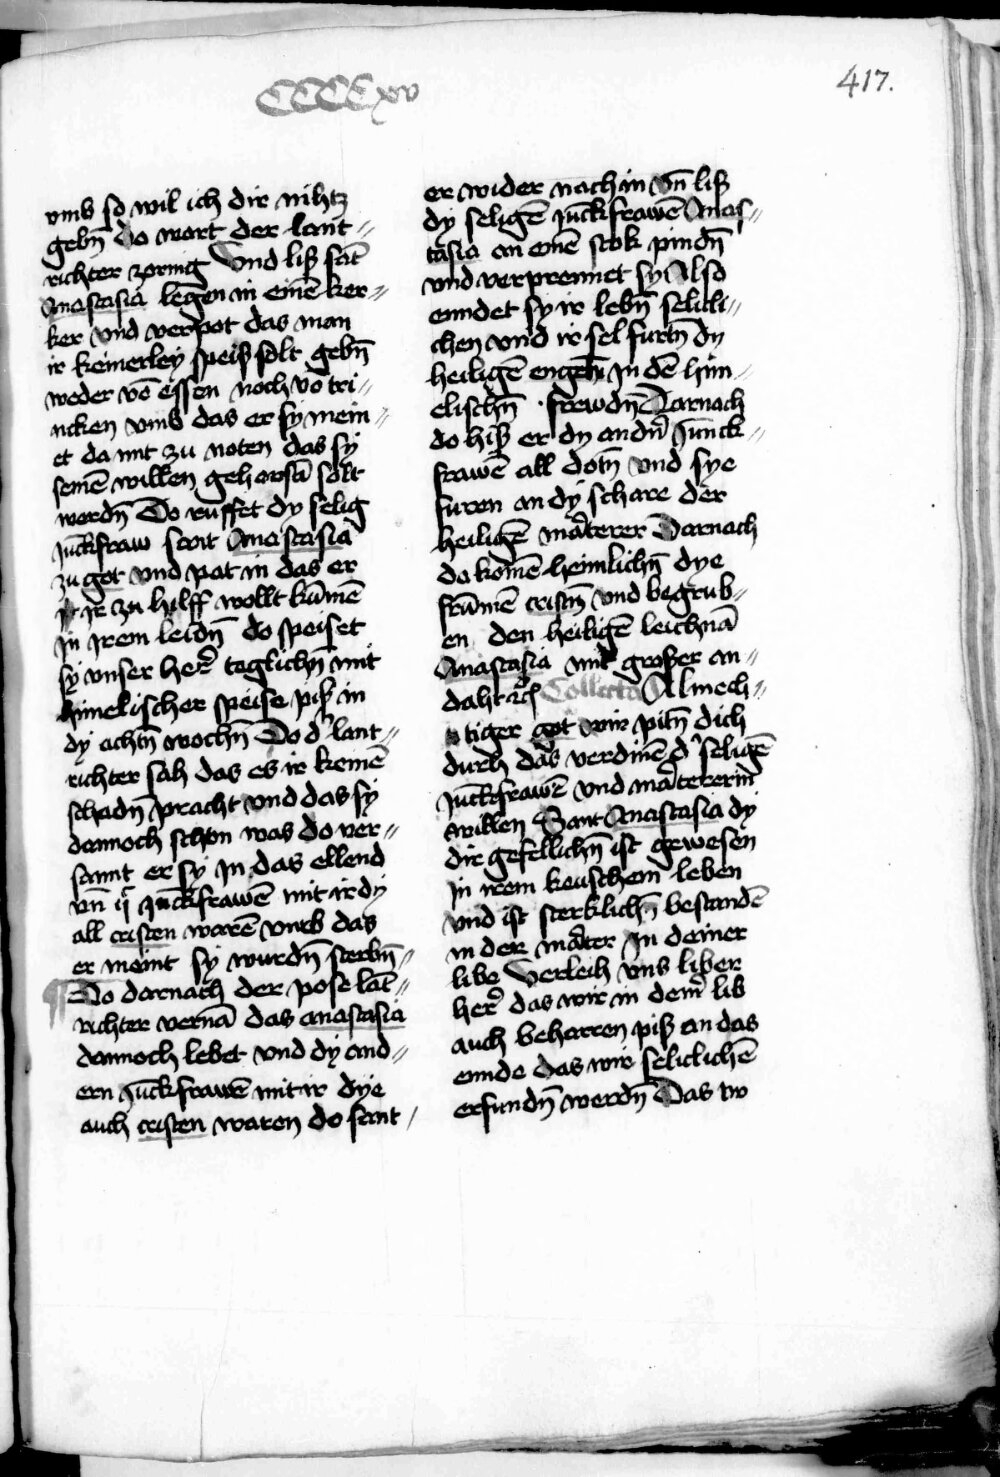 CCCCxv
417.
vmb so wil ich dir nihtz
gebn̄ do wart der lant〃
richter zornig Vnd liß sāt
Anastasia legen in einē ker〃
ker vnd verpot das man
ir keinerley speiß solt gebn̄
weder vō essen noch vō tri〃
ncken vmb das er sy mein〃
et da mit zu noten das sy
seinē willen gehorsā solt
werdn̄ Do ruffet dy selig
Juckfraw sant Anastasia
zu got vnd pat in das er
ir zu hilff wollt kūmē
in irem leidn̄ do speiset
sy vnser her̄ teglichn̄ mit
himelischer speise piß in
dy achtn̄ wochn̄ Do d' lant〃
richter sah das es ir keinē
schadn̄ pracht vnd das sy
dannoch schon was do ver〃
sannt er sy in das ellend
vn̄ ij Juckfrawē mit ir dy
all cristen warē vmb das
er meint sy wurdn̄ sterbn̄〃
¶ Do darnach der pose lāt〃
richter vernā das anastasia
dannoch lebet vnd dy and〃
ern Juckfrawē mit ir dye
auch cristen waren do sant
er wider nach in vn̄ liß
dy seligē Juckfrawē Anas〃
tasia an einē stok pindn̄
vnd verprennet sy Also
enndet sy ir lebn̄ selicli〃
chen vnd ir sel furtn̄ dy
heiligē engeln in dē him〃
elischn̄ frewdn̄ Darnach
do hiß er dy andn̄ Junck〃
frawē all dotn̄ vnd sye
furen an dy schare der
heiligē mārterer Darnach
do komē heimlichn̄ dye
frūmē cristn̄ vnd begrub〃
en den heiligē leichnā
Anastasia mit großer an〃
daht Collecta Almech〃
tiger got wir pitn̄ dich
durch das verdinē d' seligē
Juckfrawē vnd mārtererin
willen Sant Anastasia dy
dir gefellichn̄ ist gewesen
in irem keuschem leben
vnd ist sterklichn̄ bestandē
in der marter in deiner
libe Verleih vns liber
her̄ das wir in dein̄ lib
auch beharren piß an das
ennde das wir seliclichē
erfundn̄ werdn̄ Das w